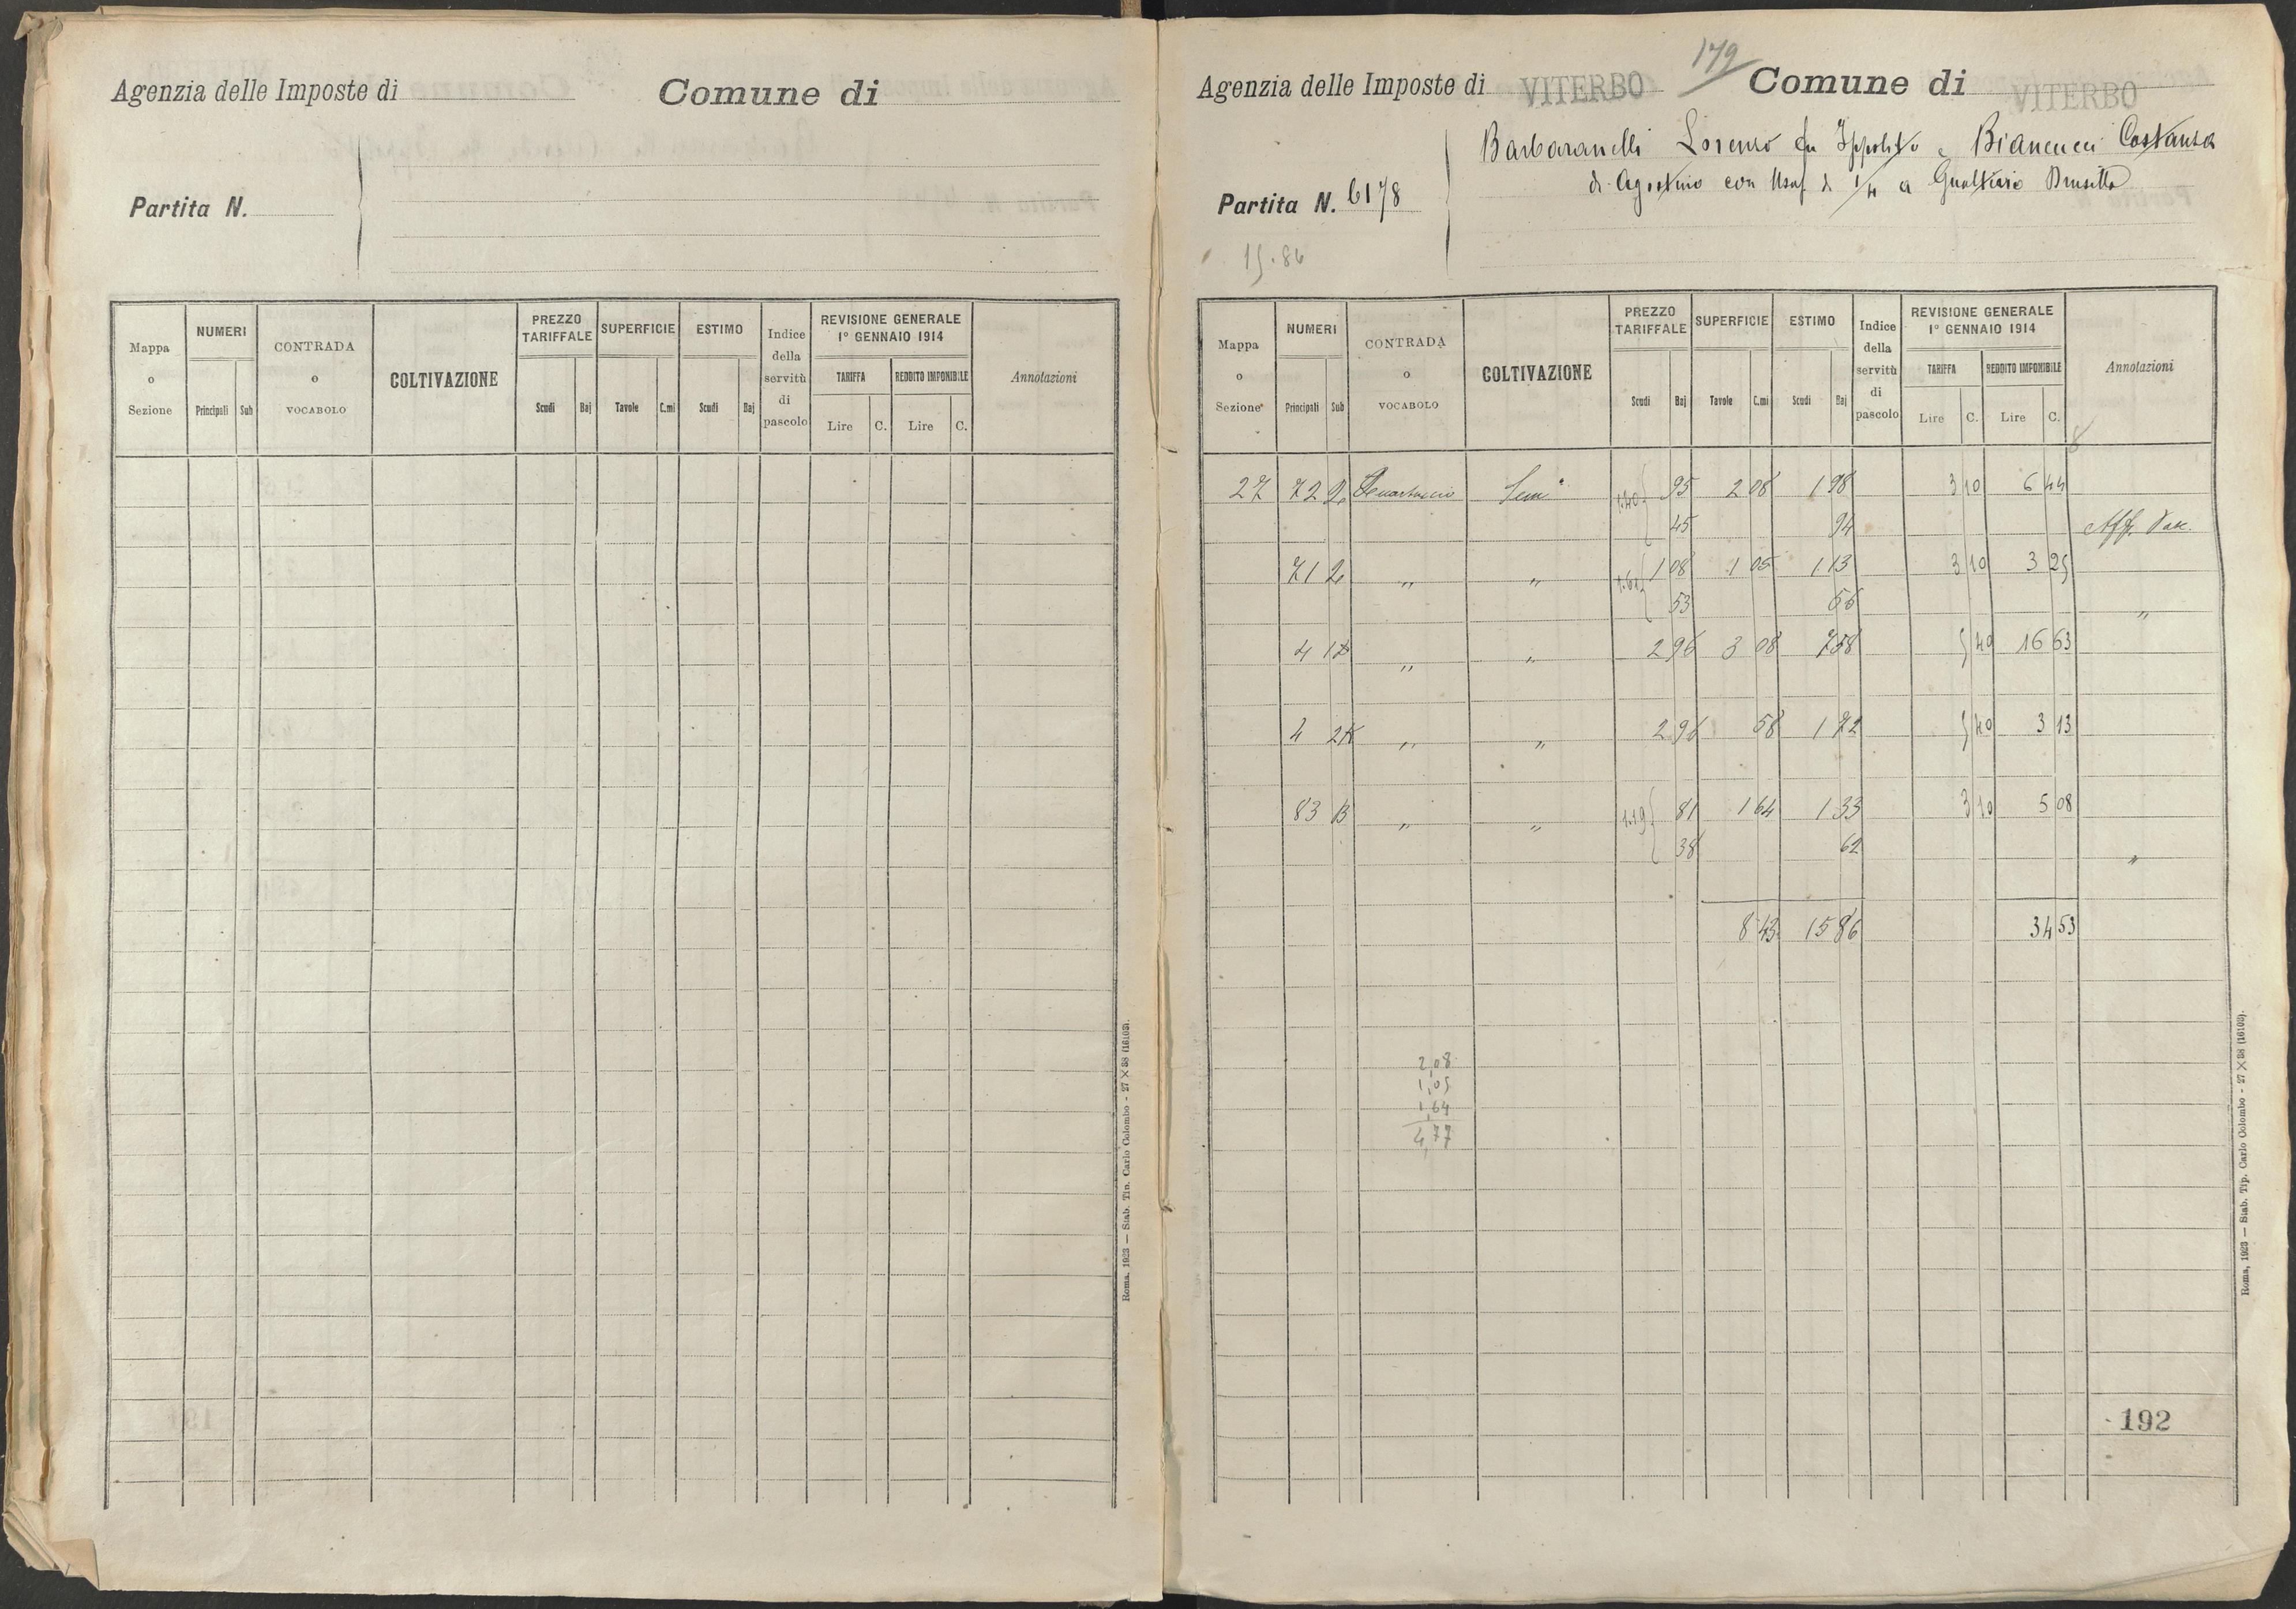 Agenzia delle Imposte di
Comune di
Partita N.
Mappa o Sezione
NUMERI
Principali Sub
CONTRADA o VOCABOLO
COLTIVAZIONE
PREZZO TARIFFALE
Scudi Baj
SUPERFICIE
Tavole C.mi
ESTIMO
Scudi Baj
Indice della servitù di pascolo
REVISIONE GENERALE 1° GENNAIO 1914
TARIFFA
Lire C.
REDDITO IMPONIBILE
Lire C.
Annotazioni
Roma. 1923 — Stab. Tip. Carlo Colombo - 27 × 38 (16103).
179
Agenzia delle Imposte di VITERBO Comune di VITERBO
Barbaranelli Lorenzo fu Ippolito e Biancucci Costanza
di Agostino con Usuf. di 1/4 a Gualtiero Brusitta
Partita N. 6178
15.86
Mappa o Sezione
NUMERI
Principali Sub
CONTRADA o VOCABOLO
COLTIVAZIONE
PREZZO TARIFFALE
Scudi Baj
SUPERFICIE
Tavole C.mi
ESTIMO
Scudi Baj
Indice della servitù di pascolo
REVISIONE GENERALE 1° GENNAIO 1914
TARIFFA
Lire C.
REDDITO IMPONIBILE
Lire C.
Annotazioni
27 72 2 Sem° 1.40 95 2 08 1 98 3 10 6 44
45 94 Aff.
71 2 " " 1.61 1 08 1 05 1 13 3 10 3 25
53 56 "
4 " " 2 96 3 08 7 58 5 40 16 63
4 " " 2 96 58 1 72 5 40 3 13
83 B " " 1.19 81 1 64 1 33 3 10 5 08
38 62 "
8 43 15 86 34 53
2,08
1,05
1,64
4,77
192
Roma, 1923 — Stab. Tip. Carlo Colombo - 27 × 38 (16103).